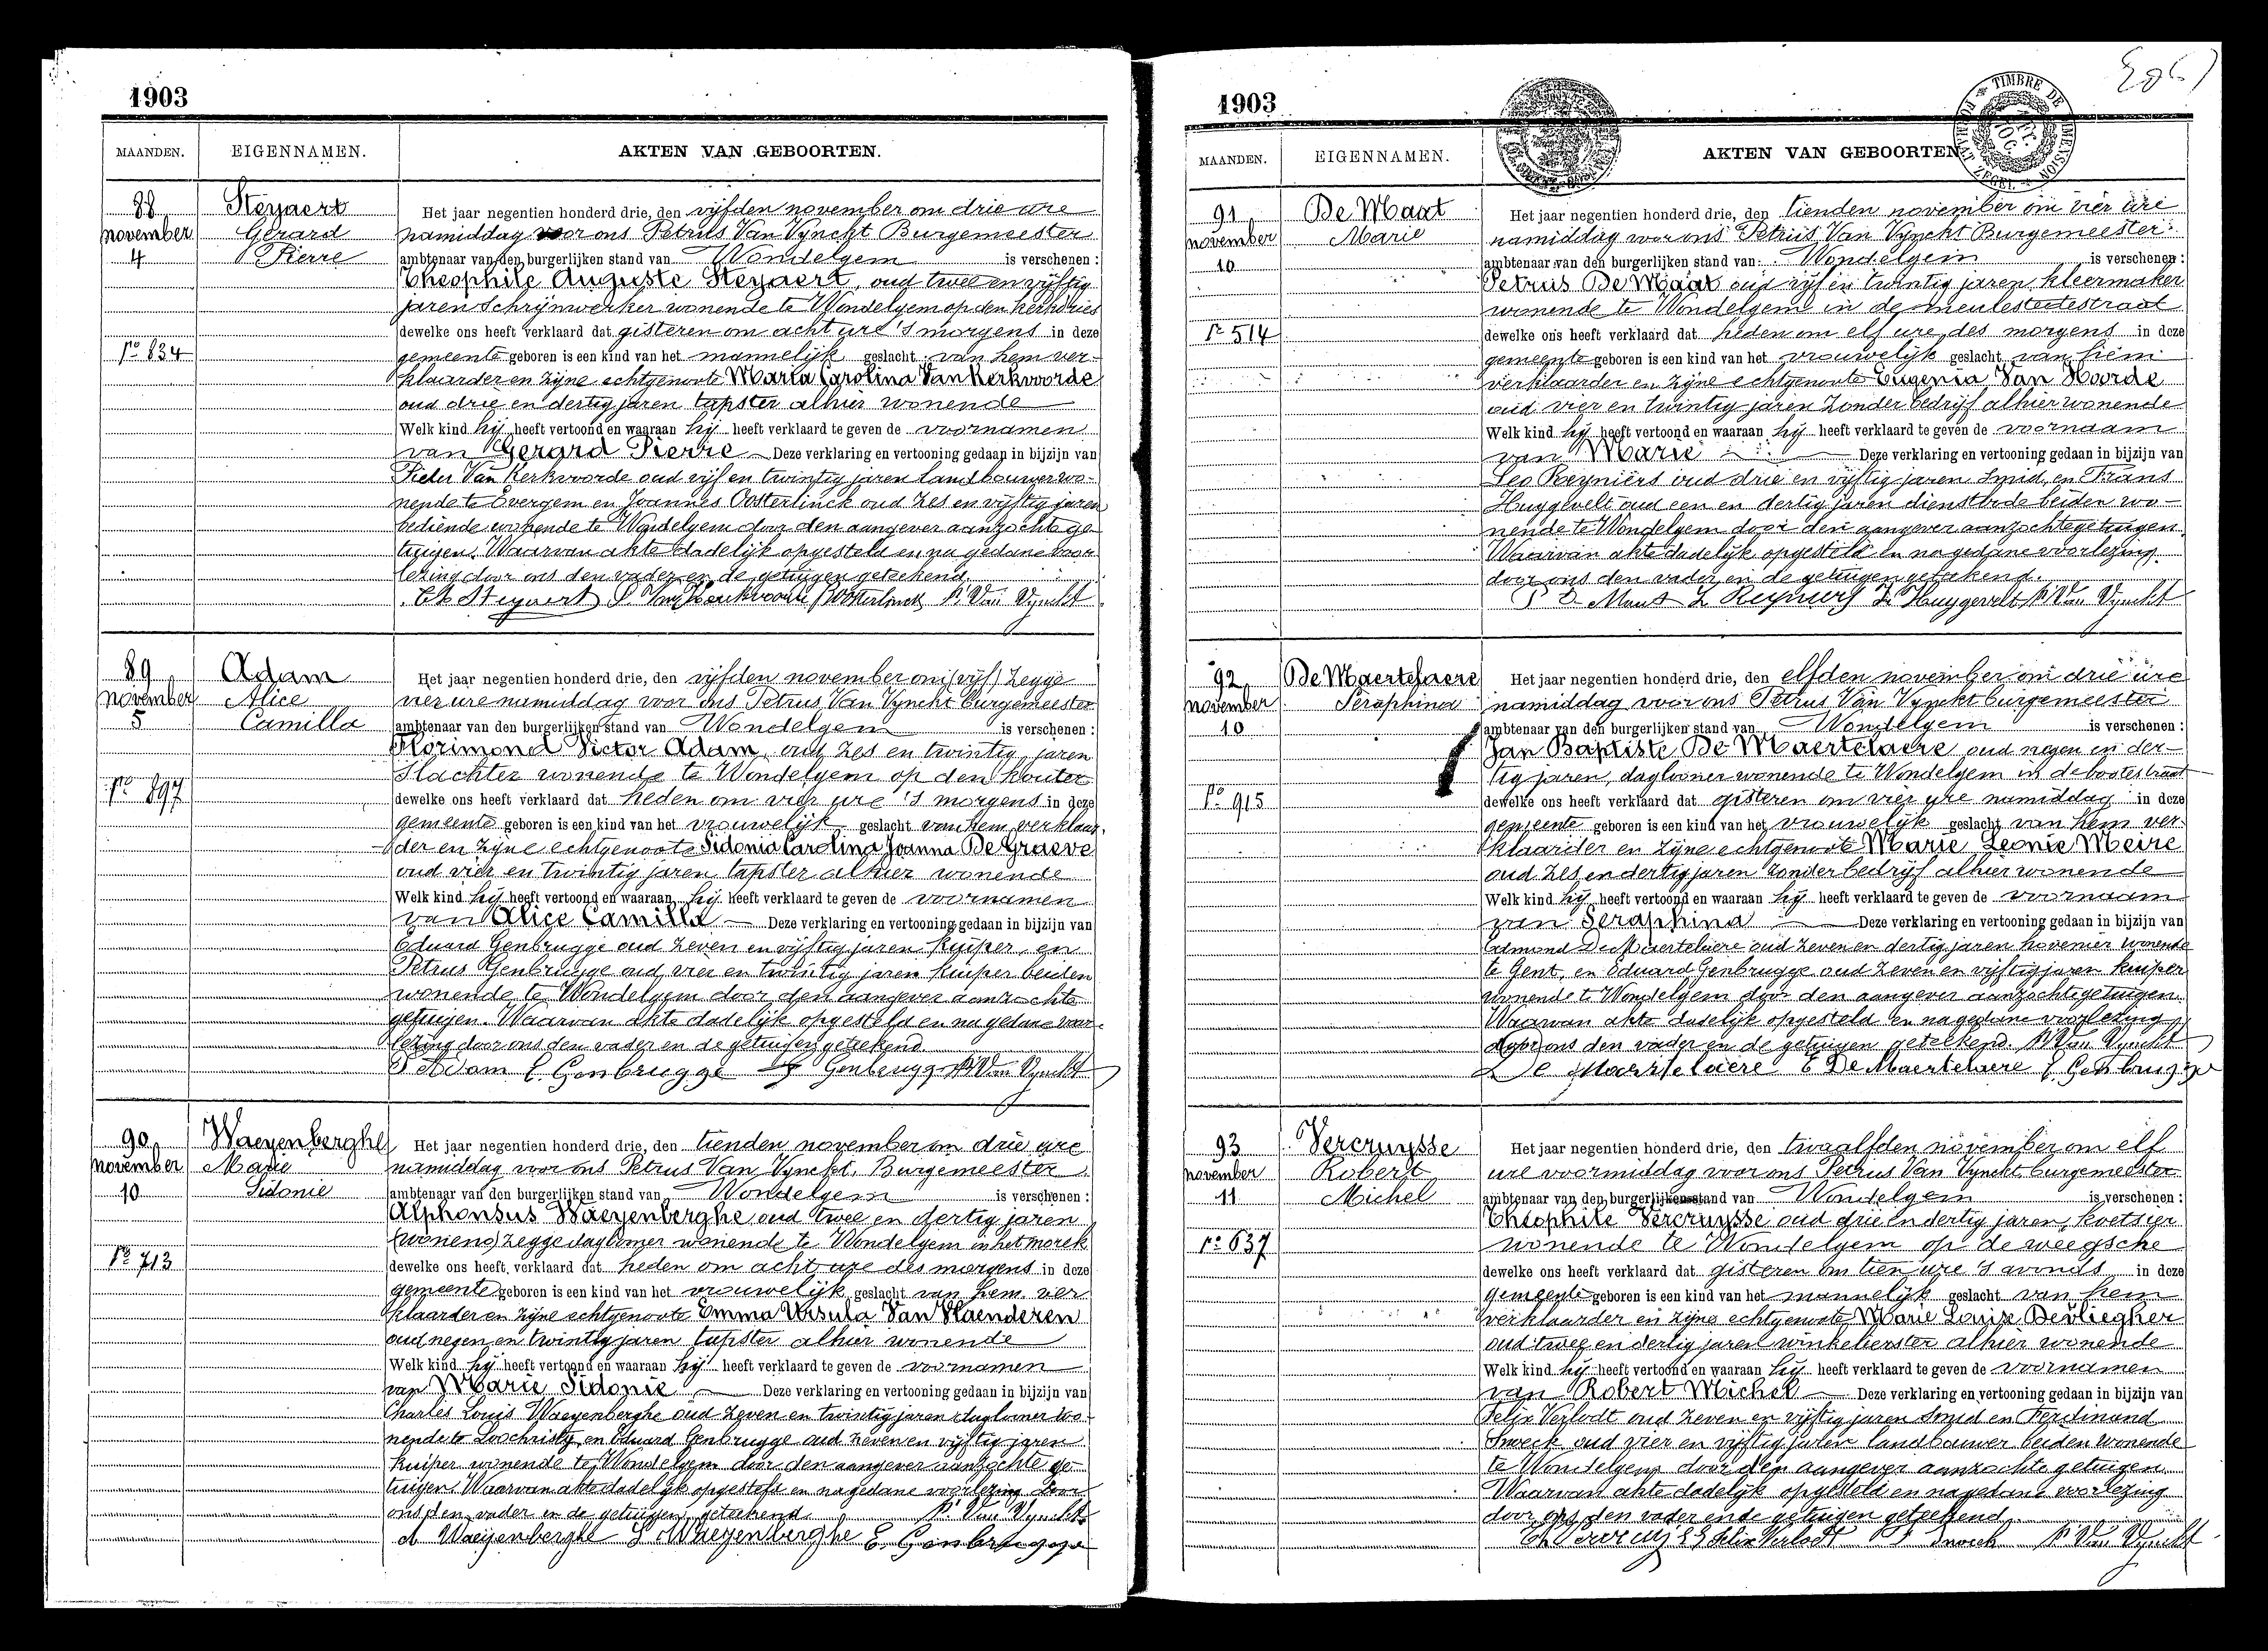 1903
MAANDEN. EIGENNAMEN. AKTEN VAN GEBOORTEN.
88 Steyaert Het jaar negentien honderd drie, den vijfden november om drie ure
november Gerard namiddag voor ons Petrus Van Vynckt Burgemeester
4 Pierre ambtenaar van den burgerlijken stand van Wondelgem is verschenen :
Theophile Auguste Steyaert, oud twee en vijftig
jaren Schrijnwerker wonende te Wondelgem op den kerkdries
dewelke ons heeft verklaard dat gisteren om acht ure 's morgens in deze
No 834 gemeente geboren is een kind van het mannelijk geslacht van hem ver-
klaarder en zijne echtgenoote Maria Carolina Van Kerkvoorde
oud drie en dertig jaren tapster alhier wonende
Welk kind hij heeft vertoond en waaraan hij heeft verklaard te geven de voornamen
van Gerard Pierre Deze verklaring en vertooning gedaan in bijzijn van
Pieter Van Kerkvoorde oud vijf en twintig jaren landbouwer wo-
nende te Evergem en Joannes Oosterlinck oud zes en vijftig jaren
bediende wonende te Wondelgem door den aangever aanzochte ge
tuigen. Waarvan akte dadelijk opgesteld en na gedane voor
lezing door ons den vader en de getuigen geteekend.
Th Steyaert P. Van Kerkvoorde J Oosterlinck P. Van Vynckt
89 Adam Het jaar negentien honderd drie, den vijfden november om (vijf) zegge
november Alice vier ure namiddag voor ons Petrus Van Vynckt Burgemeester
5 Camilla ambtenaar van den burgerlijken stand van Wondelgem is verschenen :
Florimond Victor Adam, oud zes en twintig jaren
Slachter wonende te Wondelgem op den kouter
No 897 dewelke ons heeft verklaard dat heden om vier ure 's morgens in deze
gemeente geboren is een kind van het vrouwelijk geslacht van hem verklaar-
der en zijne echtgenoote Sidonia Carolina Joanna De Graeve
oud vier en twintig jaren tapster alhier wonende
Welk kind hij heeft vertoond en waaraan hij heeft verklaard te geven de voornamen
van Alice Camilla Deze verklaring en vertooning gedaan in bijzijn van
Eduard Genbrugge oud zeven en vijftig jaren kuiper, en
Petrus Genbrugge oud vier en twintig jaren kuiper beiden
wonende te Wondelgem door den aangever aanzochte
getuigen. Waarvan akte dadelijk opgesteld en na gedane voor-
lezing door ons den vader en de getuigen geteekend
Adam E. Genbrugge Genbrugge P. Van Vynckt
90 Waeyenberghe Het jaar negentien honderd drie, den tienden november om drie ure
november Marie namiddag voor ons Petrus Van Vynckt, Burgemeester
10 Sidonie ambtenaar van den burgerlijken stand van Wondelgem is verschenen :
Alphonsus Waeyenberghe oud twee en dertig jaren
(wonend) zegge daglooner wonende te Wondelgem in het morek
No 713 dewelke ons heeft verklaard dat heden om acht ure des morgens in deze
gemeente geboren is een kind van het vrouwelijk geslacht van hem ver
klaarder en zijne echtgenoote Emma Ursula Van Vlaenderen
oud negen en twintig jaren tapster alhier wonende
Welk kind hij heeft vertoond en waaraan hij heeft verklaard te geven de voornamen
van Marie Sidonie Deze verklaring en vertooning gedaan in bijzijn van
Charles Louis Waeyenberghe oud zeven en twintig jaren daglooner wo-
nende te Loochristy en Eduard Genbrugge oud zeven en vijftig jaren
kuiper wonende te Wondelgem door den aangever aanzochte ge
tuigen. Waarvan akte dadelijk opgesteld en na gedane voorlezing door
ons den vader en de getuigen geteekend P. Van Vynckt
A Waeyenberghe Waeyenberghe E. Genbrugge
1903
MAANDEN. EIGENNAMEN. AKTEN VAN GEBOORTEN
91 De Maat Het jaar negentien honderd drie, den tienden november om vier ure
november Marie namiddag voor ons Petrus Van Vynckt Burgemeester
10 ambtenaar van den burgerlijken stand van Wondelgem is verschenen :
Petrus De Maat oud vijf en twintig jaren, kleermaker
wonende te Wondelgem in de meulestedestraat
No 514 dewelke ons heeft verklaard dat heden om elf ure des morgens in deze
gemeente geboren is een kind van het vrouwelijk geslacht van hem
verklaarder en zijne echtgenoote Eugenia Van Hoorde
oud vier en twintig jaren zonder bedrijf alhier wonende
Welk kind hij heeft vertoond en waaraan hij heeft verklaard te geven de voornaam
van Marie Deze verklaring en vertooning gedaan in bijzijn van
Leo Reyniers oud drie en vijftig jaren Smid, en Frans
Huygevelt oud een en dertig jaren dienstbode beiden wo-
nende te Wondelgem door den aangever aanzochte getuigen
Waarvan akte dadelijk opgesteld en na gedane voorlezing
door ons den vader en de getuigen geteekend.
P D Maat L Reyniers Fr Huygevelt P. Van Vynckt
92 De Maertelaere Het jaar negentien honderd drie, den elfden november om drie ure
november Seraphina namiddag voor ons Petrus Van Vynckt burgemeester
10 ambtenaar van den burgerlijken stand van Wondelgem is verschenen :
Jan Baptiste De Maertelaere oud negen en der-
tig jaren, daglooner wonende te Wondelgem in de bootestraat
No 915 dewelke ons heeft verklaard dat gisteren om vier ure namiddag in deze
gemeente geboren is een kind van het vrouwelijk geslacht van hem ver-
klaarder en zijne echtgenoote Marie Leonie Meire
oud zes en dertig jaren zonder bedrijf alhier wonende
Welk kind hij heeft vertoond en waaraan hij heeft verklaard te geven de voornaam
van Seraphina Deze verklaring en vertooning gedaan in bijzijn van
Edmond De Maertelaere oud zeven en dertig jaren hovenier wonende
te Gent, en Eduard Genbrugge oud zeven en vijftig jaren kuiper
wonende te Wondelgem door den aangever aanzochte getuigen
Waarvan akte dadelijk opgesteld en na gedane voorlezing
door ons den vader en de getuigen geteekend. P. Van Vynckt
De Maertelaere E De Maertelaere E. Genbrugge
93 Vercruysse Het jaar negentien honderd drie, den twaalfden november om elf
november Robert ure voormiddag voor ons Petrus Van Vynckt burgemeester
11 Michel ambtenaar van den burgerlijken stand van Wondelgem is verschenen :
Theophile Vercruysse oud drie en dertig jaren, koetsier
No 637 wonende te Wondelgem op de weegsche
dewelke ons heeft verklaard dat gisteren om tien ure 's avonds in deze
gemeente geboren is een kind van het mannelijk geslacht van hem
verklaarder en zijne echtgenoote Marie Louize Devliegher
oud twee en dertig jaren winkelierster alhier wonende
Welk kind hij heeft vertoond en waaraan hij heeft verklaard te geven de voornamen
van Robert Michel Deze verklaring en vertooning gedaan in bijzijn van
Felix Verlodt oud zeven en vijftig jaren Smid en Ferdinand
Snoeck oud vier en vijftig jaren landbouwer beiden wonende
te Wondelgem door den aangever aanzochte getuigen
Waarvan akte dadelijk opgesteld en na gedane voorlezing
door ons den vader en de getuigen geteekend.
Felix Verlodt F Snoeck P. Van Vynckt